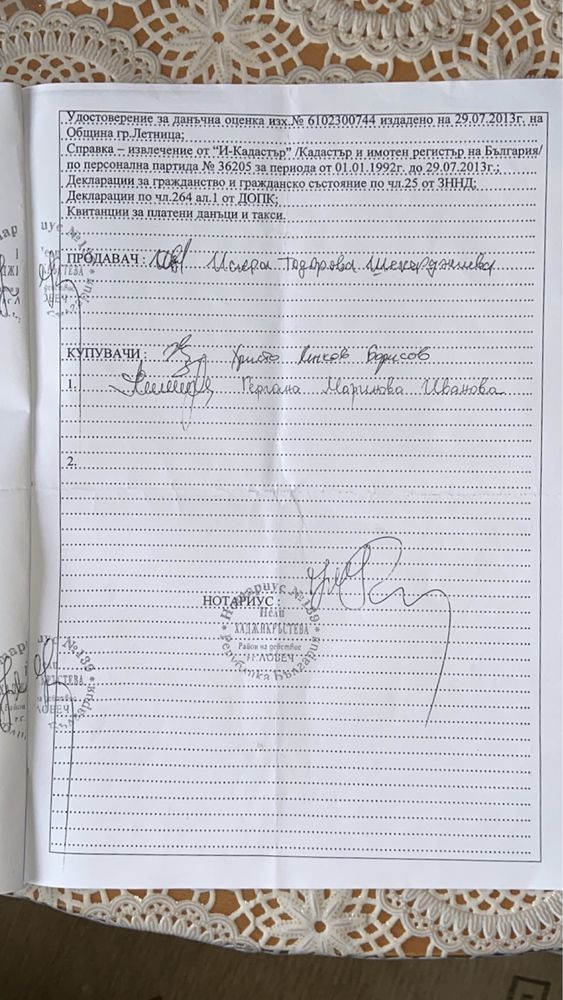 Удостоверение за данъчна оценка изх.№ 6102300744 издадено на 29.07.2013г. на
Община гр.Летница;
Справка – извлечение от “И-Кадастър” /Кадастър и имотен регистър на България/
по персонална партида № 36205 за периода от 01.01.1992г. до 29.07.2013г.;
Декларации за гражданство и гражданско състояние по чл.25 от ЗННД;
Декларации по чл.264 ал.1 от ДОПК;
Квитанции за платени данъци и такси.
ПРОДАВАЧ: Тодорова Шекерджиева
КУПУВАЧИ: Христо Борисов
1. Гергана Маринова Иванова
2.
НОТАРИУС:
Нотариус №139
Нели
ХАДЖИКРЪСТЕВА
Район на действие
ЛОВЕЧ
Република България
№139